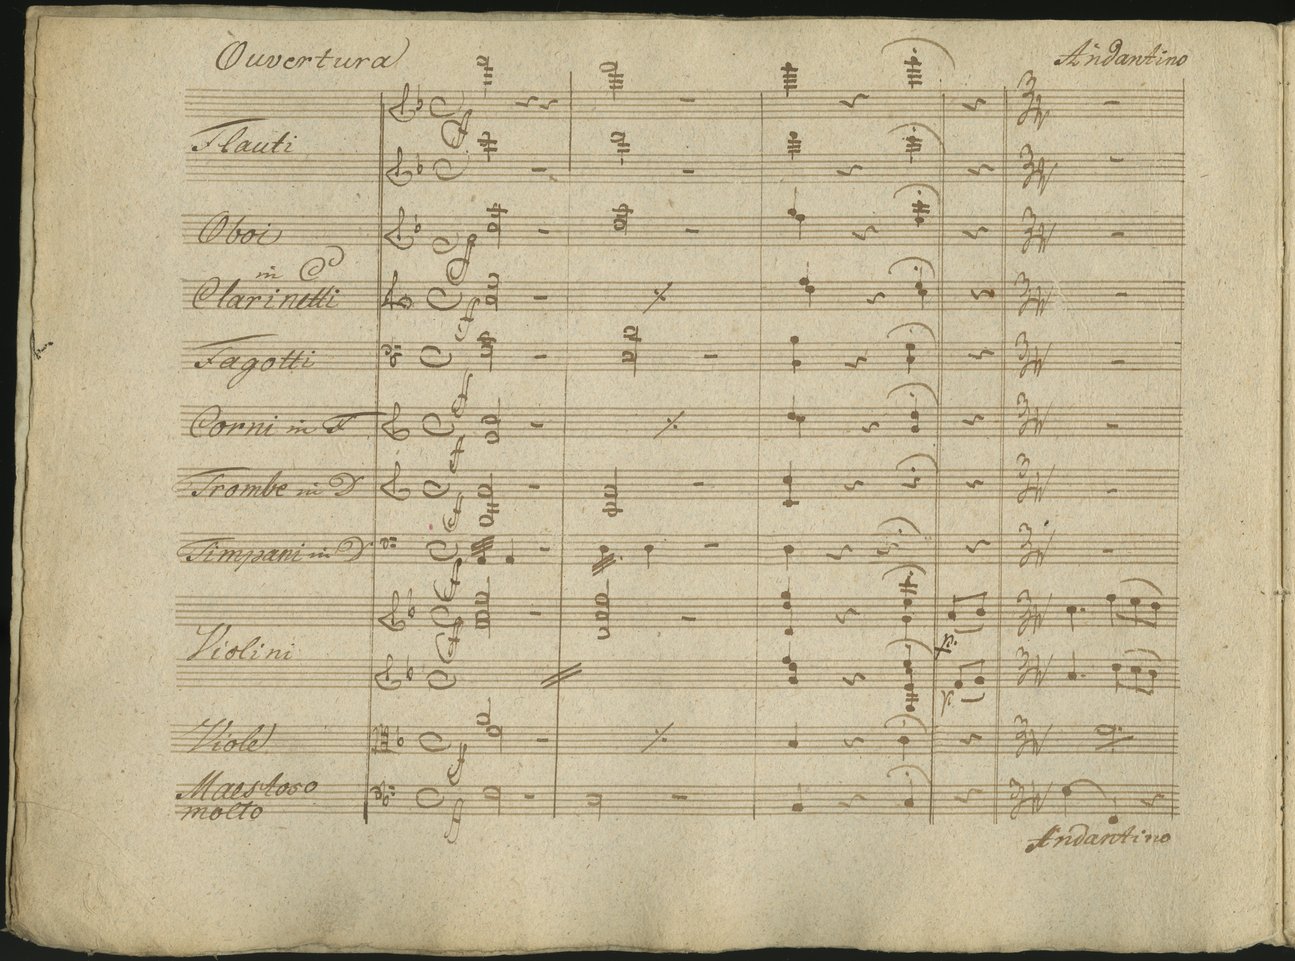 Ouvertura
Andantino
Flauti
Oboi
in C
Clarinetti
Fagotti
Corni in F
Trombe in D
Timpani in D
Violini
p.
p.
Viole
Maestoso
molto
Andantino